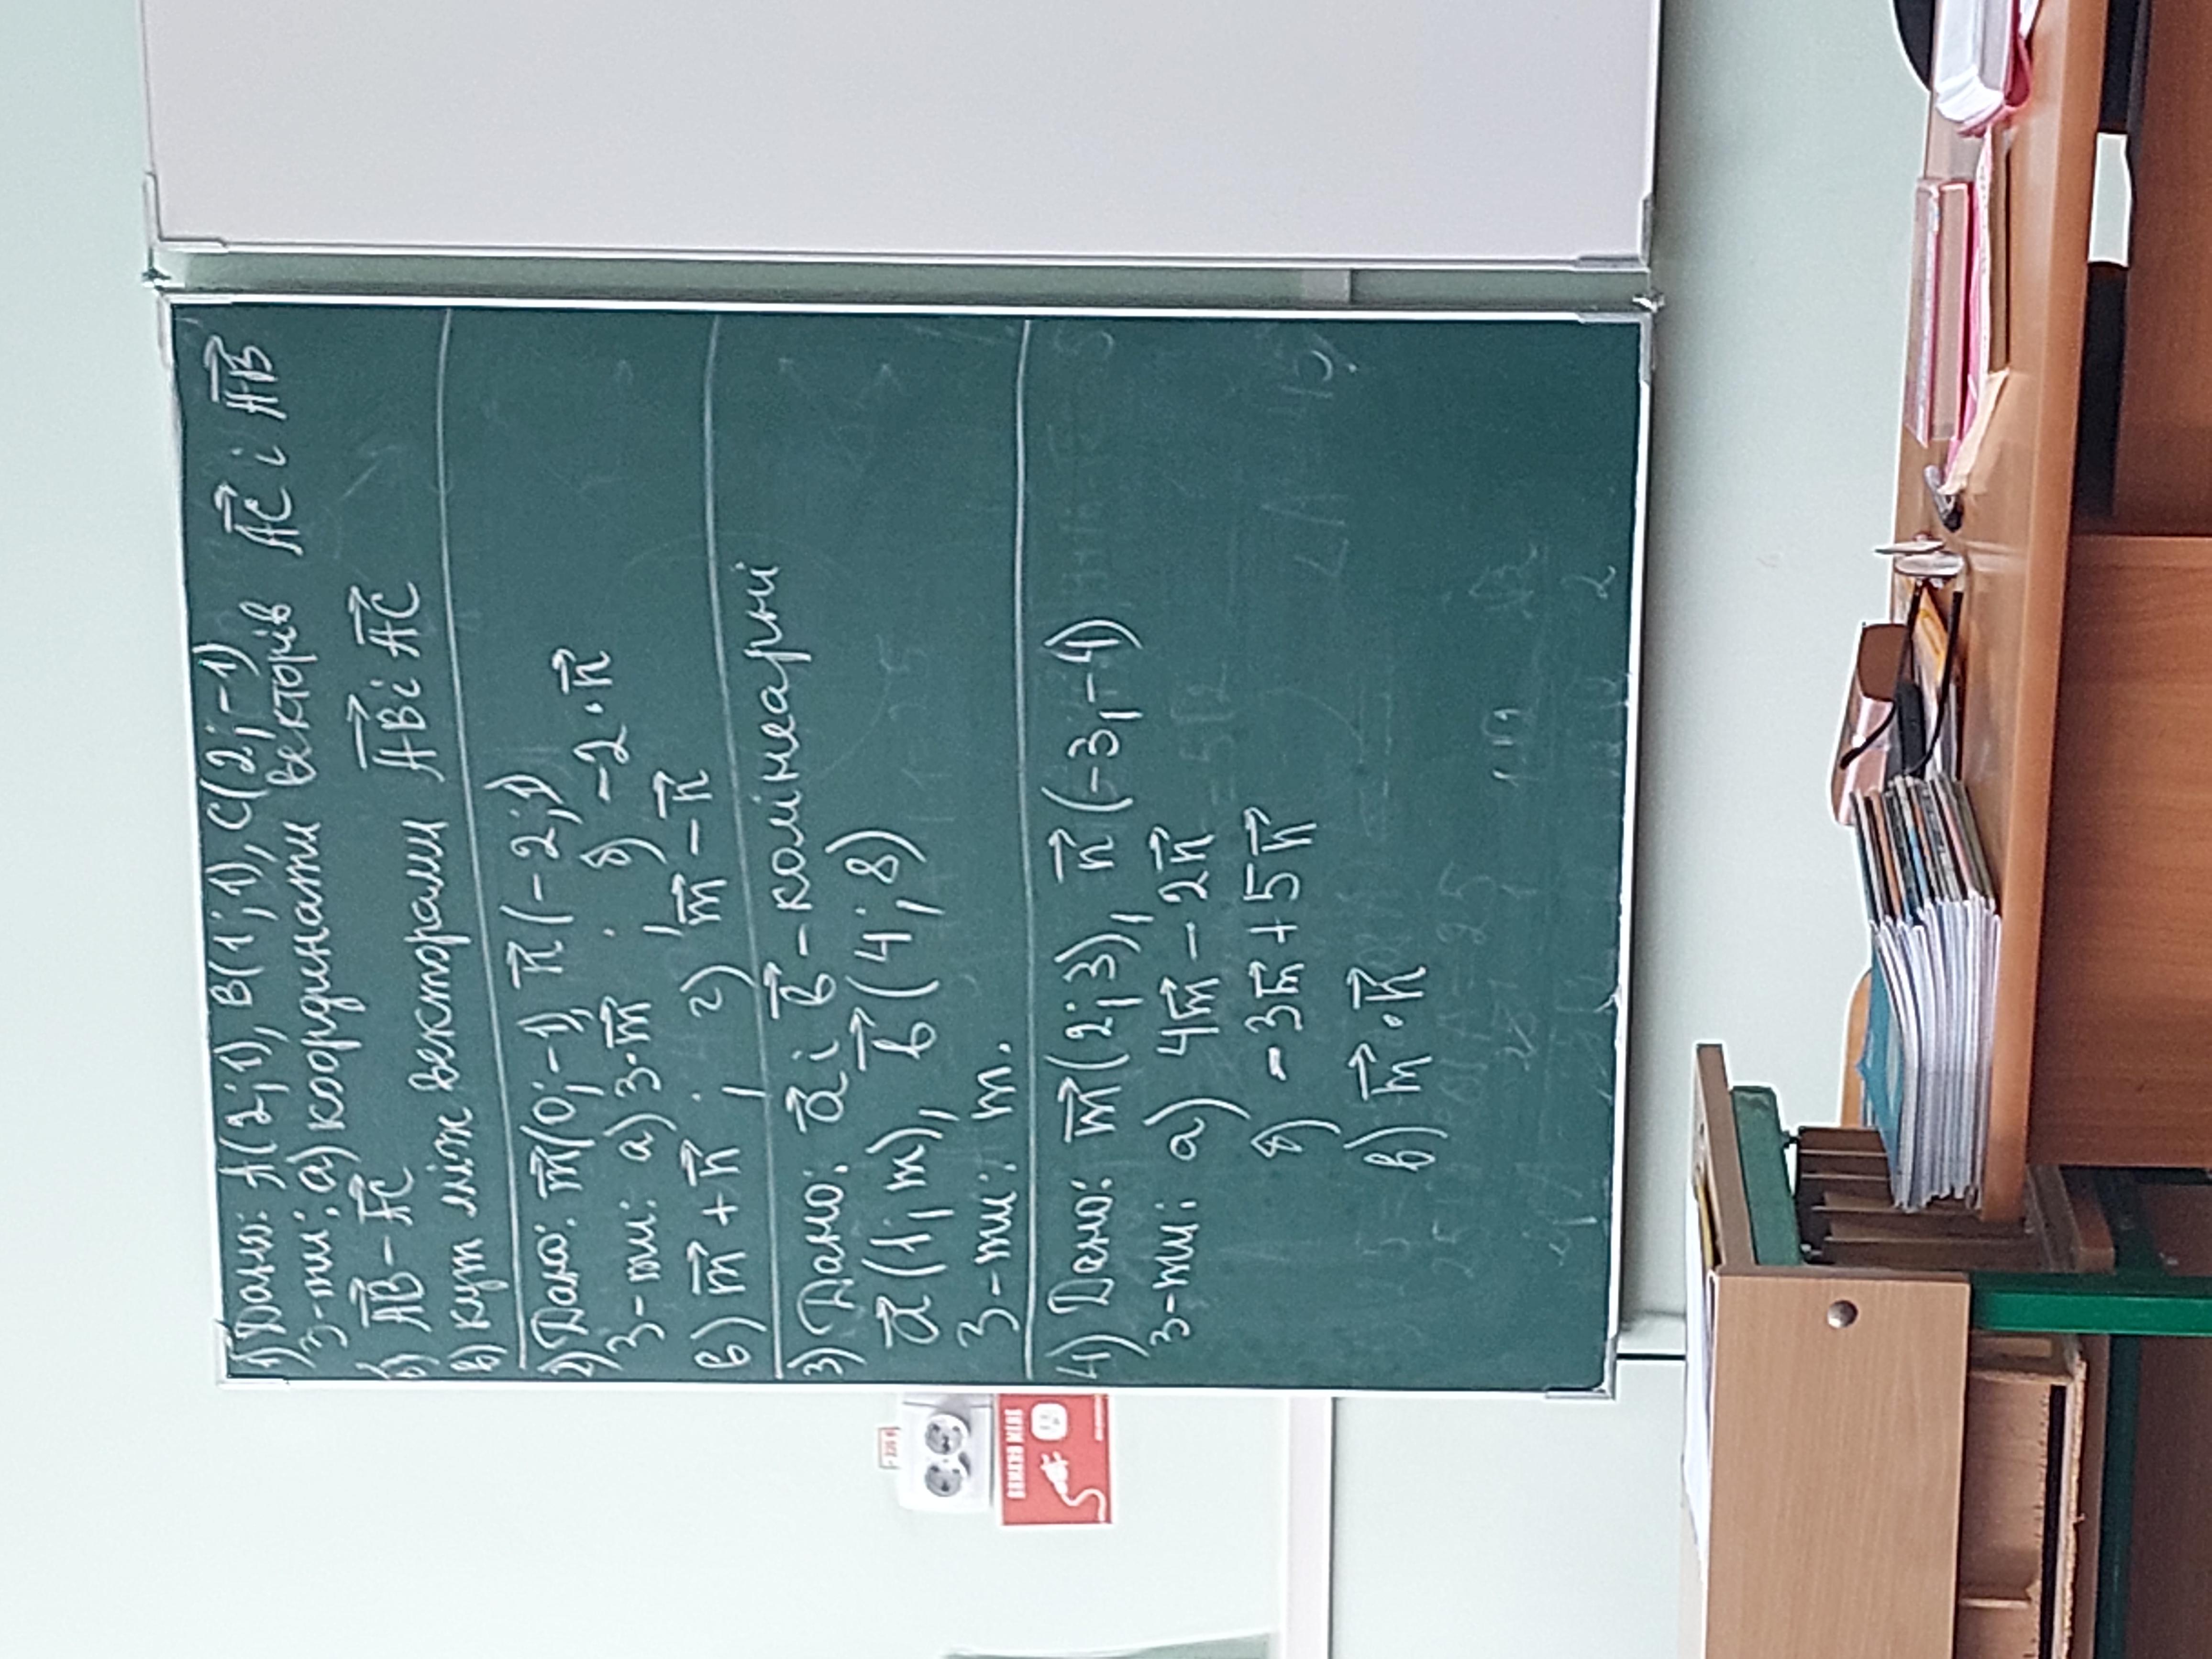 1) Дано: A(2;1), B(1;1), C(2;-1)
З-ти: а) координати векторів AC і AB
б) AB - AC
в) кут між векторами AB і AC
2) Дано: m(0;-1), n(-2;1)
З-ти: а) 3·m ; б) -2·n
в) m + n ; г) m - n
3) Дано: a і b - колінеарні
a(1;m), b(4;8)
З-ти: m.
4) Дано: m(2;3), n(-3;-4)
З-ти: а) 4m - 2n
б) -3m + 5n
в) m · n